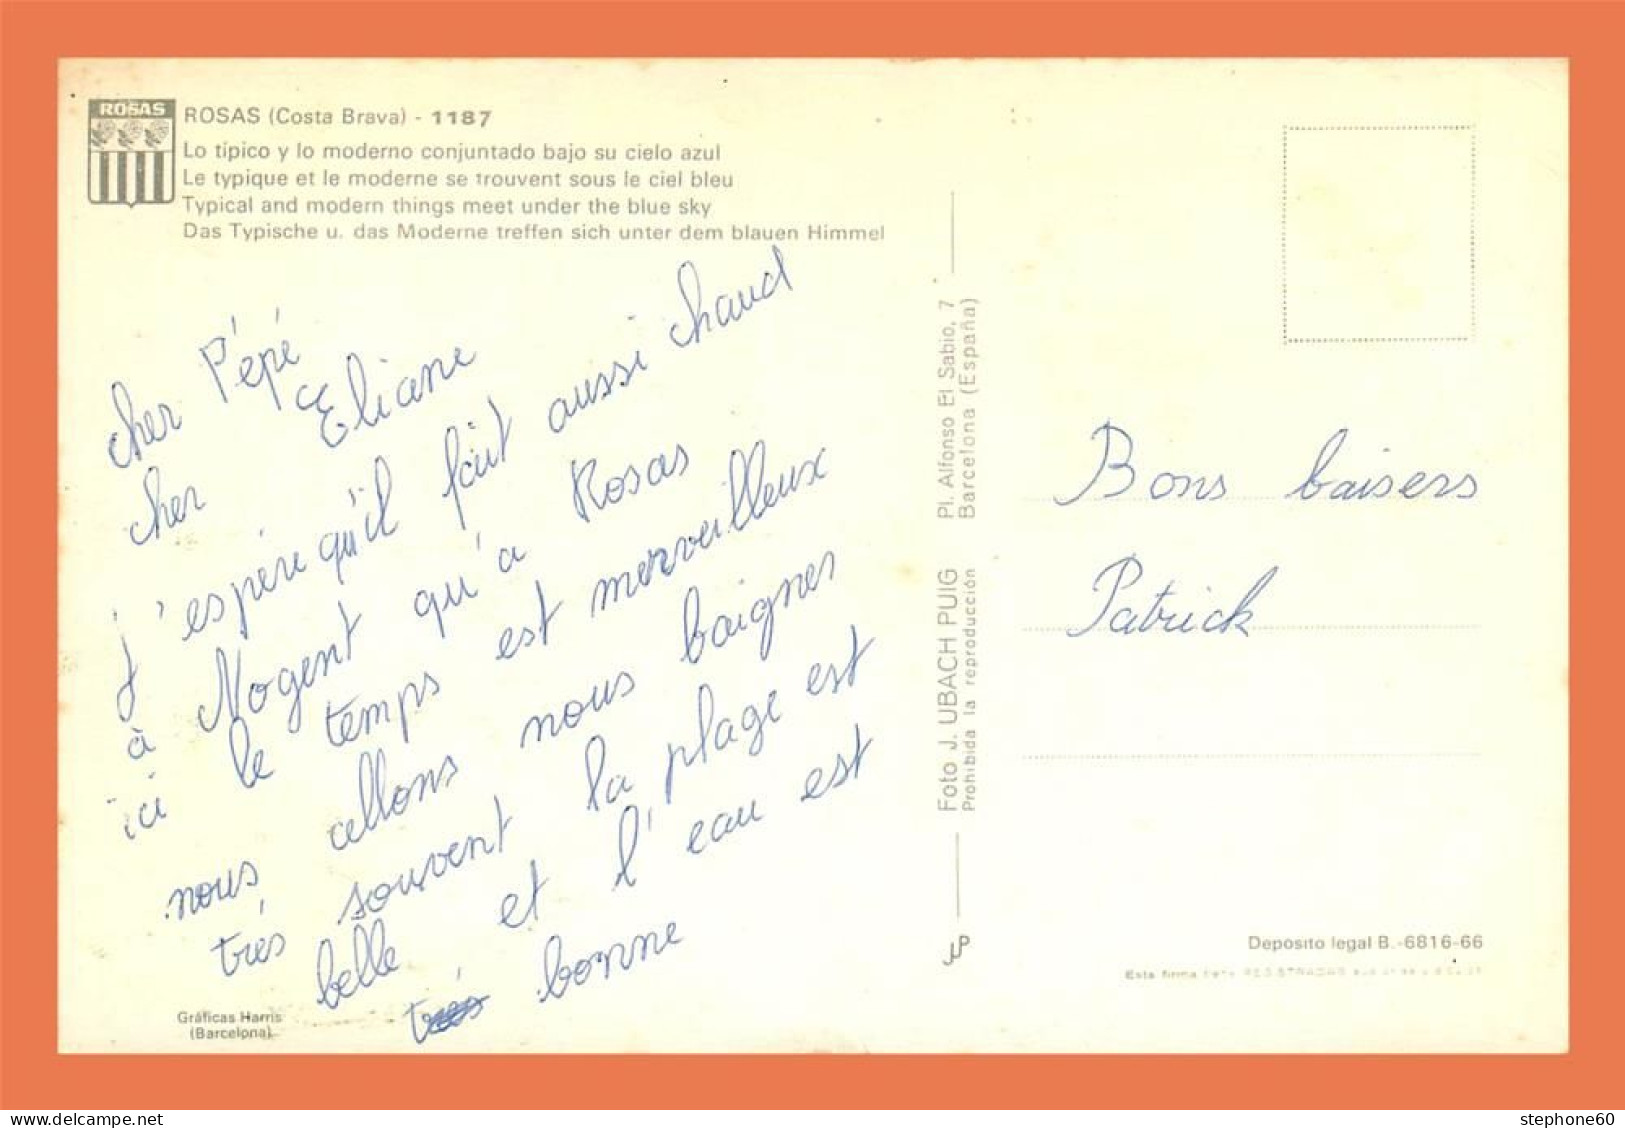 ROSAS
ROSAS (Costa Brava) - 1187
Lo típico y lo moderno conjuntado bajo su cielo azul
Le typique et le moderne se trouvent sous le ciel bleu
Typical and modern things meet under the blue sky
Das Typische u. das Moderne treffen sich unter dem blauen Himmel
cher Pépé
cher Eliane
j'espère qu'il fait aussi chaud
à Nogent qu'à Rosas
ici le temps est merveilleux
nous allons nous baigner
très souvent la plage est
belle et l'eau est
très bonne
Gráficas Harris
(Barcelona)
Foto J. UBACH PUIG Pl. Alfonso El Sabio, 7
Prohibida la reproducción Barcelona (España)
JUP
Bons baisers
Patrick
Depósito legal B.-6816-66
Esta firma
delcampe.net
stephone60